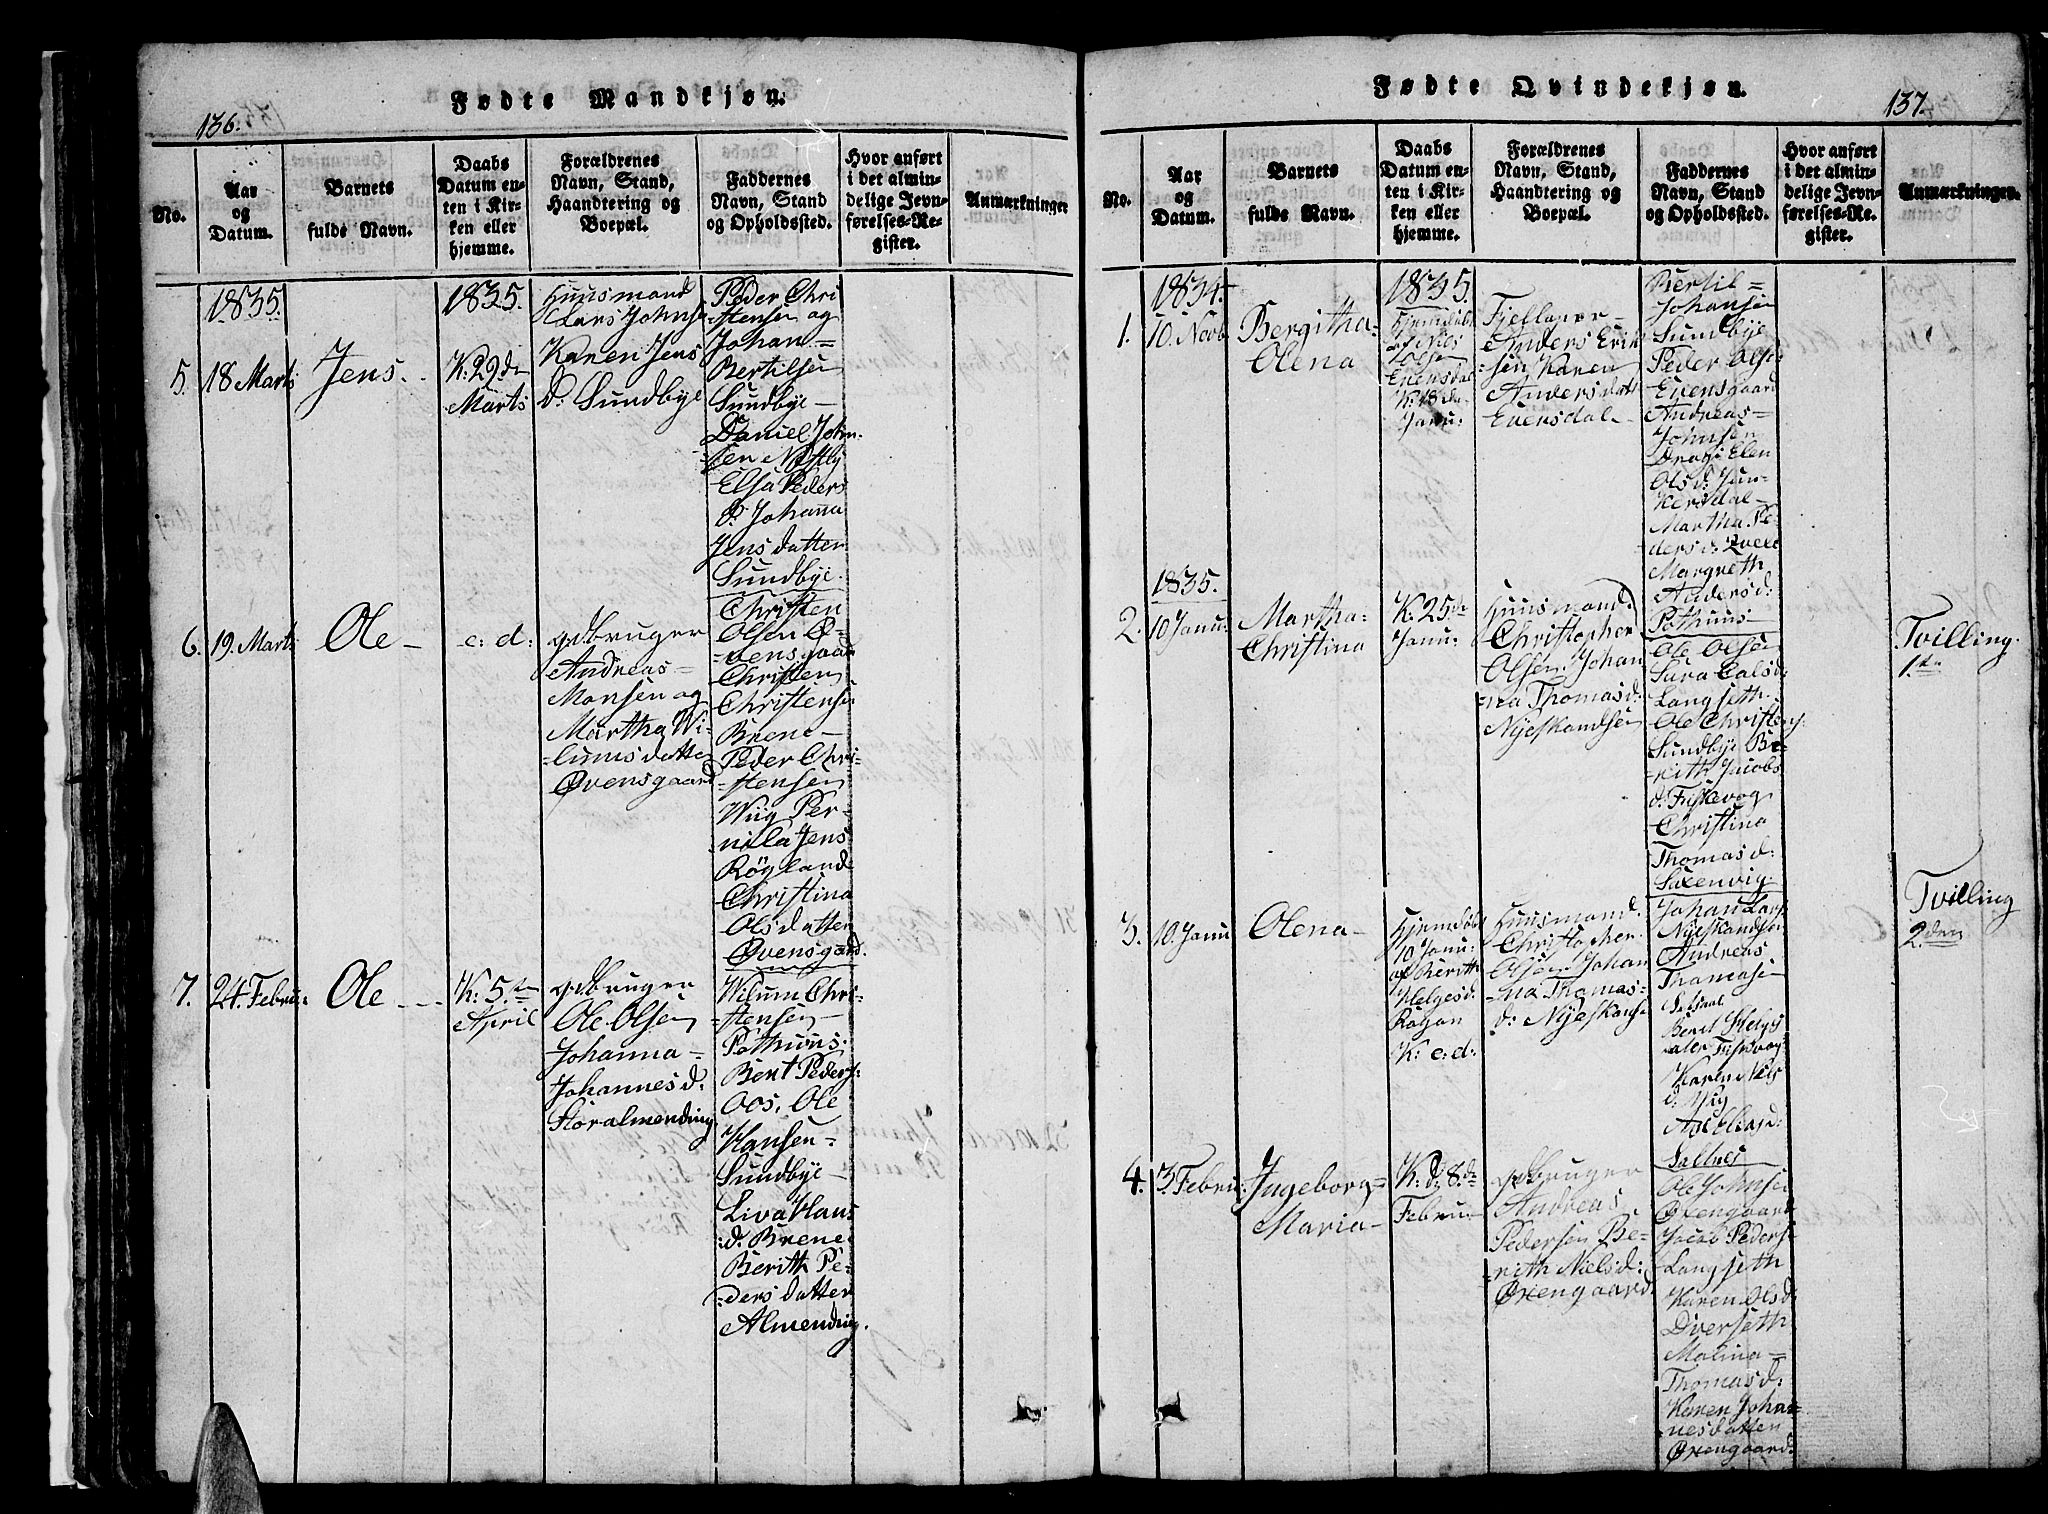 136.
Fødte Mandkjøn.
No.
Aar
og
Datum.
Barnets
fulde Navn.
Daabs
Datum en-
ten i Kir-
ken eller
hjemme.
Forældrenes
Navn, Stand,
Haandtering og
Boepæl.
Faddernes
Navn, Stand
og Opholdssted.
Hvor anført
i det almin-
delige Jevn-
førelses-Re-
gister.
Anmærkninger
1835.
5.
18 Marts
Jens.
1835.
K: 29de
Marts
Huusmand
Lars Johns
Karen Jens
d: Sundbye
Peder Chri
stensen og
Johan=
Bertilsen
Sundbye-
Daniel John
sen Næstby
Elsa Peders
d: Johanna
Jens datter
Sundbye.
6.
19. Marts
Ole
e: d:
gdbruger
Andreas
Monsen og
Martha Wi
=lumsdatte
Øvensgaard
Christen
Olsen Ø=
=vensgaar
Christen
Christense
Brene-
Peder Chri-
=stensen
Wiig Per-
nila Jens
Røgland
Christina
Olsdatter
Øvensgard.
7.
24. Febru:
Ole
K: 5.te
April
gdbruger
Ole Olsen
Johanna=
Johannesd:
Storalmending
Wilum Chri-
stensen-
Pothuus.
Bent Peders
Oos. Ole
Hansen=
Sundbye-
Liva Hans
d: Brene
Berith Pe-
=ders datter
Almending.
137.
Fødte Qvindekjøn.
No.
Aar
og
Datum.
Barnets
fulde Navn.
Daabs
Datum en-
ten i Kir-
ken eller
hjemme.
Forældrenes
Navn, Stand,
Haandtering og
Boepæl.
Faddernes
Navn, Stand
og Opholdssted.
Hvor anført
i det almin-
delige Jevn-
førelses-Re-
gister.
Anmærkninger.
1834.
1.
10. Novb
Bergitha=
Olena
1835.
Hjemdøbt
af Nils
Olsen
Evensdal
K: 18de
Janu:
Fjellaper
Anders Erik
sen Karen
Andersdatt
Evensdal
Bertil=
Johansen
Sundbye
Peder Olse
Evensgaard
Andreas=
Johnsen
Elen
Olsd: Jun-
kersdal-
Martha Pe-
dersd:
Margreth
Andersd:
Pothuus-
1835.
2.
10 Janu:
Martha=
Christina
K: 25de
Janu:
Huusmand
Christopher
Olsen. Johan
=na Thomasd:
Nyeskandsen
Ole Olsen
Sara Calsd:
Langseth.
Ole Christens
Sundbye Be-
rith Jacobs
d: Fiskevog
Christina
Thomasd:
Saxenvig.
Tvilling
1.ste
3.
10. Janu
Olena-
Hjemdøbt
10 Janu:
af Berith
Helgesd:
Rogan
K: e: d:
Huusmand.
Christopher
Olsen Johan
=na Thomas=
d: Nyeskanse
Johan Lars
Nyeskandsen
Andreas
Thomasen
Berit Helges
Karen Nils
d: Vig
Saltnes
Tvilling
2.den
4.
3. Febru:
Ingeborg=
Maria-
K: d: 8.de
Febru-
gdbruger
Andreas
Pedersen Be-
=rith Nielsd:
Øxengaard.
Ole Johnse
Øxengaard
Jacob Peders
Langseth
Karen Olsd:
Dverseth
Malina=
Thomasd:
Karen Johan=
nesdatten
Øxengaard.